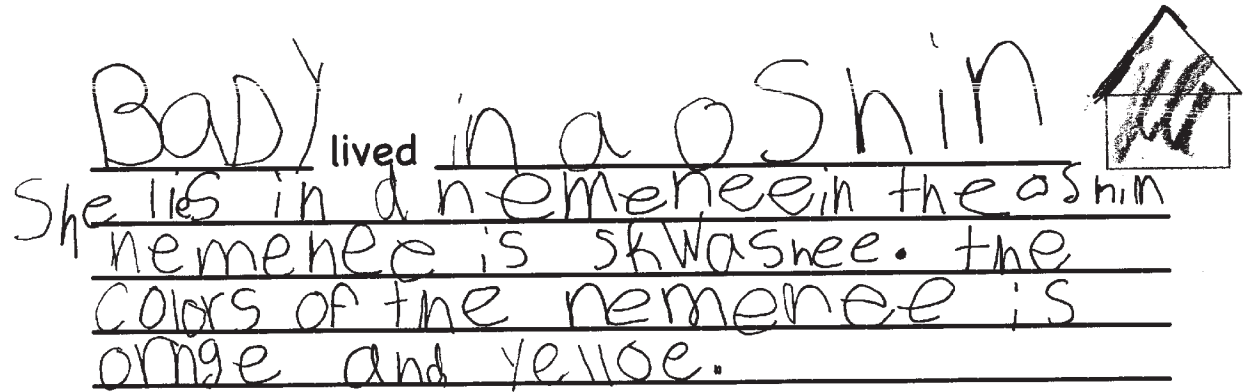 BaDy lived in a oShin
She lies in a nemeneein the oshin
nemenee is skwashee. the
colors of the nemenee is
ornge and yelloe.